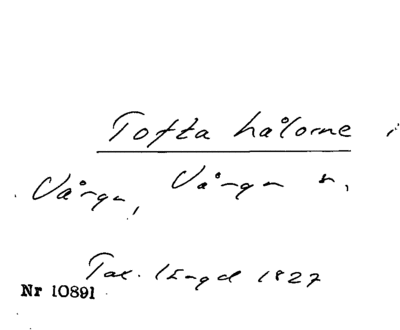 Tofta hålorne i
Vånga, Vånga s.
Tax. längd 1827
Nr 10891